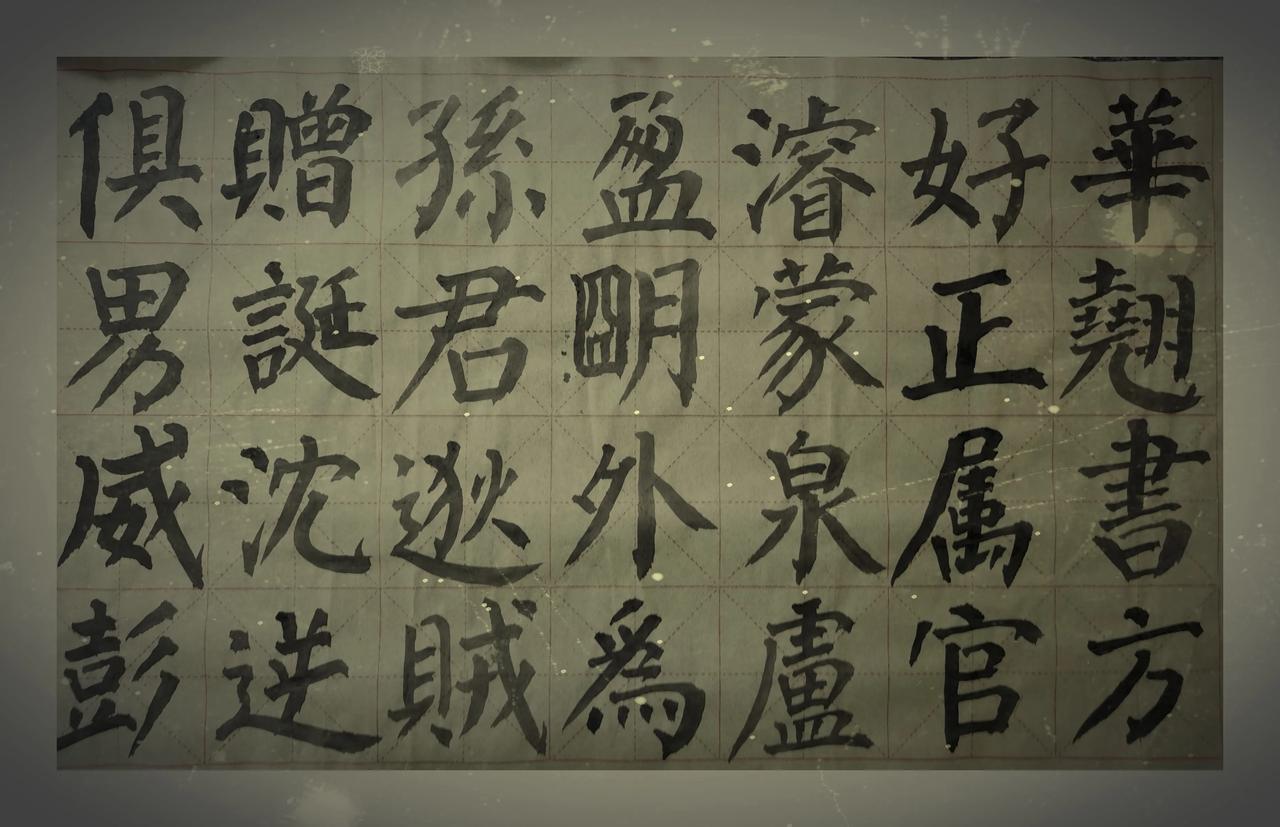 華翹書方
好正属官
濬蒙泉盧
盈朙外爲
孫君逖賊
贈誕沈逆
俱男威彭